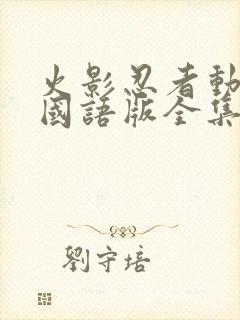 火影忍者動
國語版全集
劉守培